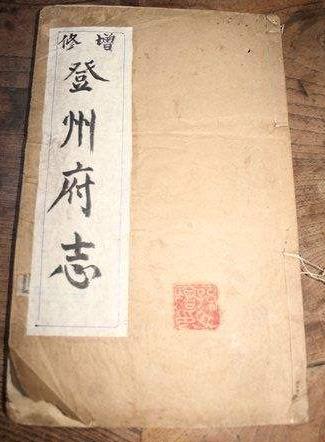 增修
登州府志